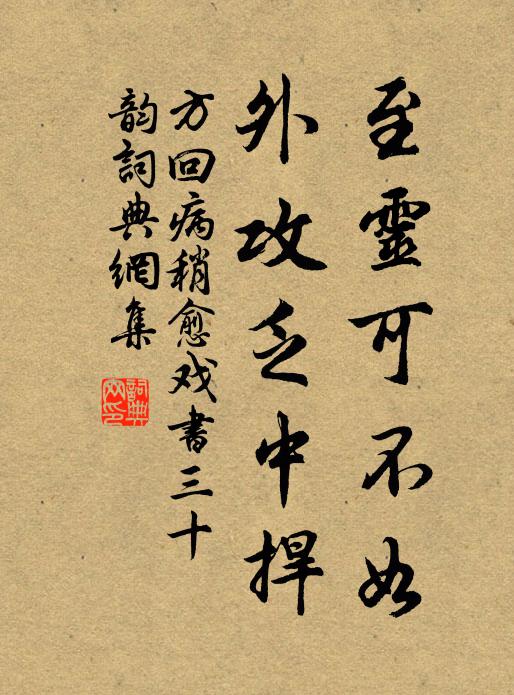 至靈可不如
外攻乏中捍
方回病稍愈戏書三十
韵詞典網集
詞典
网印